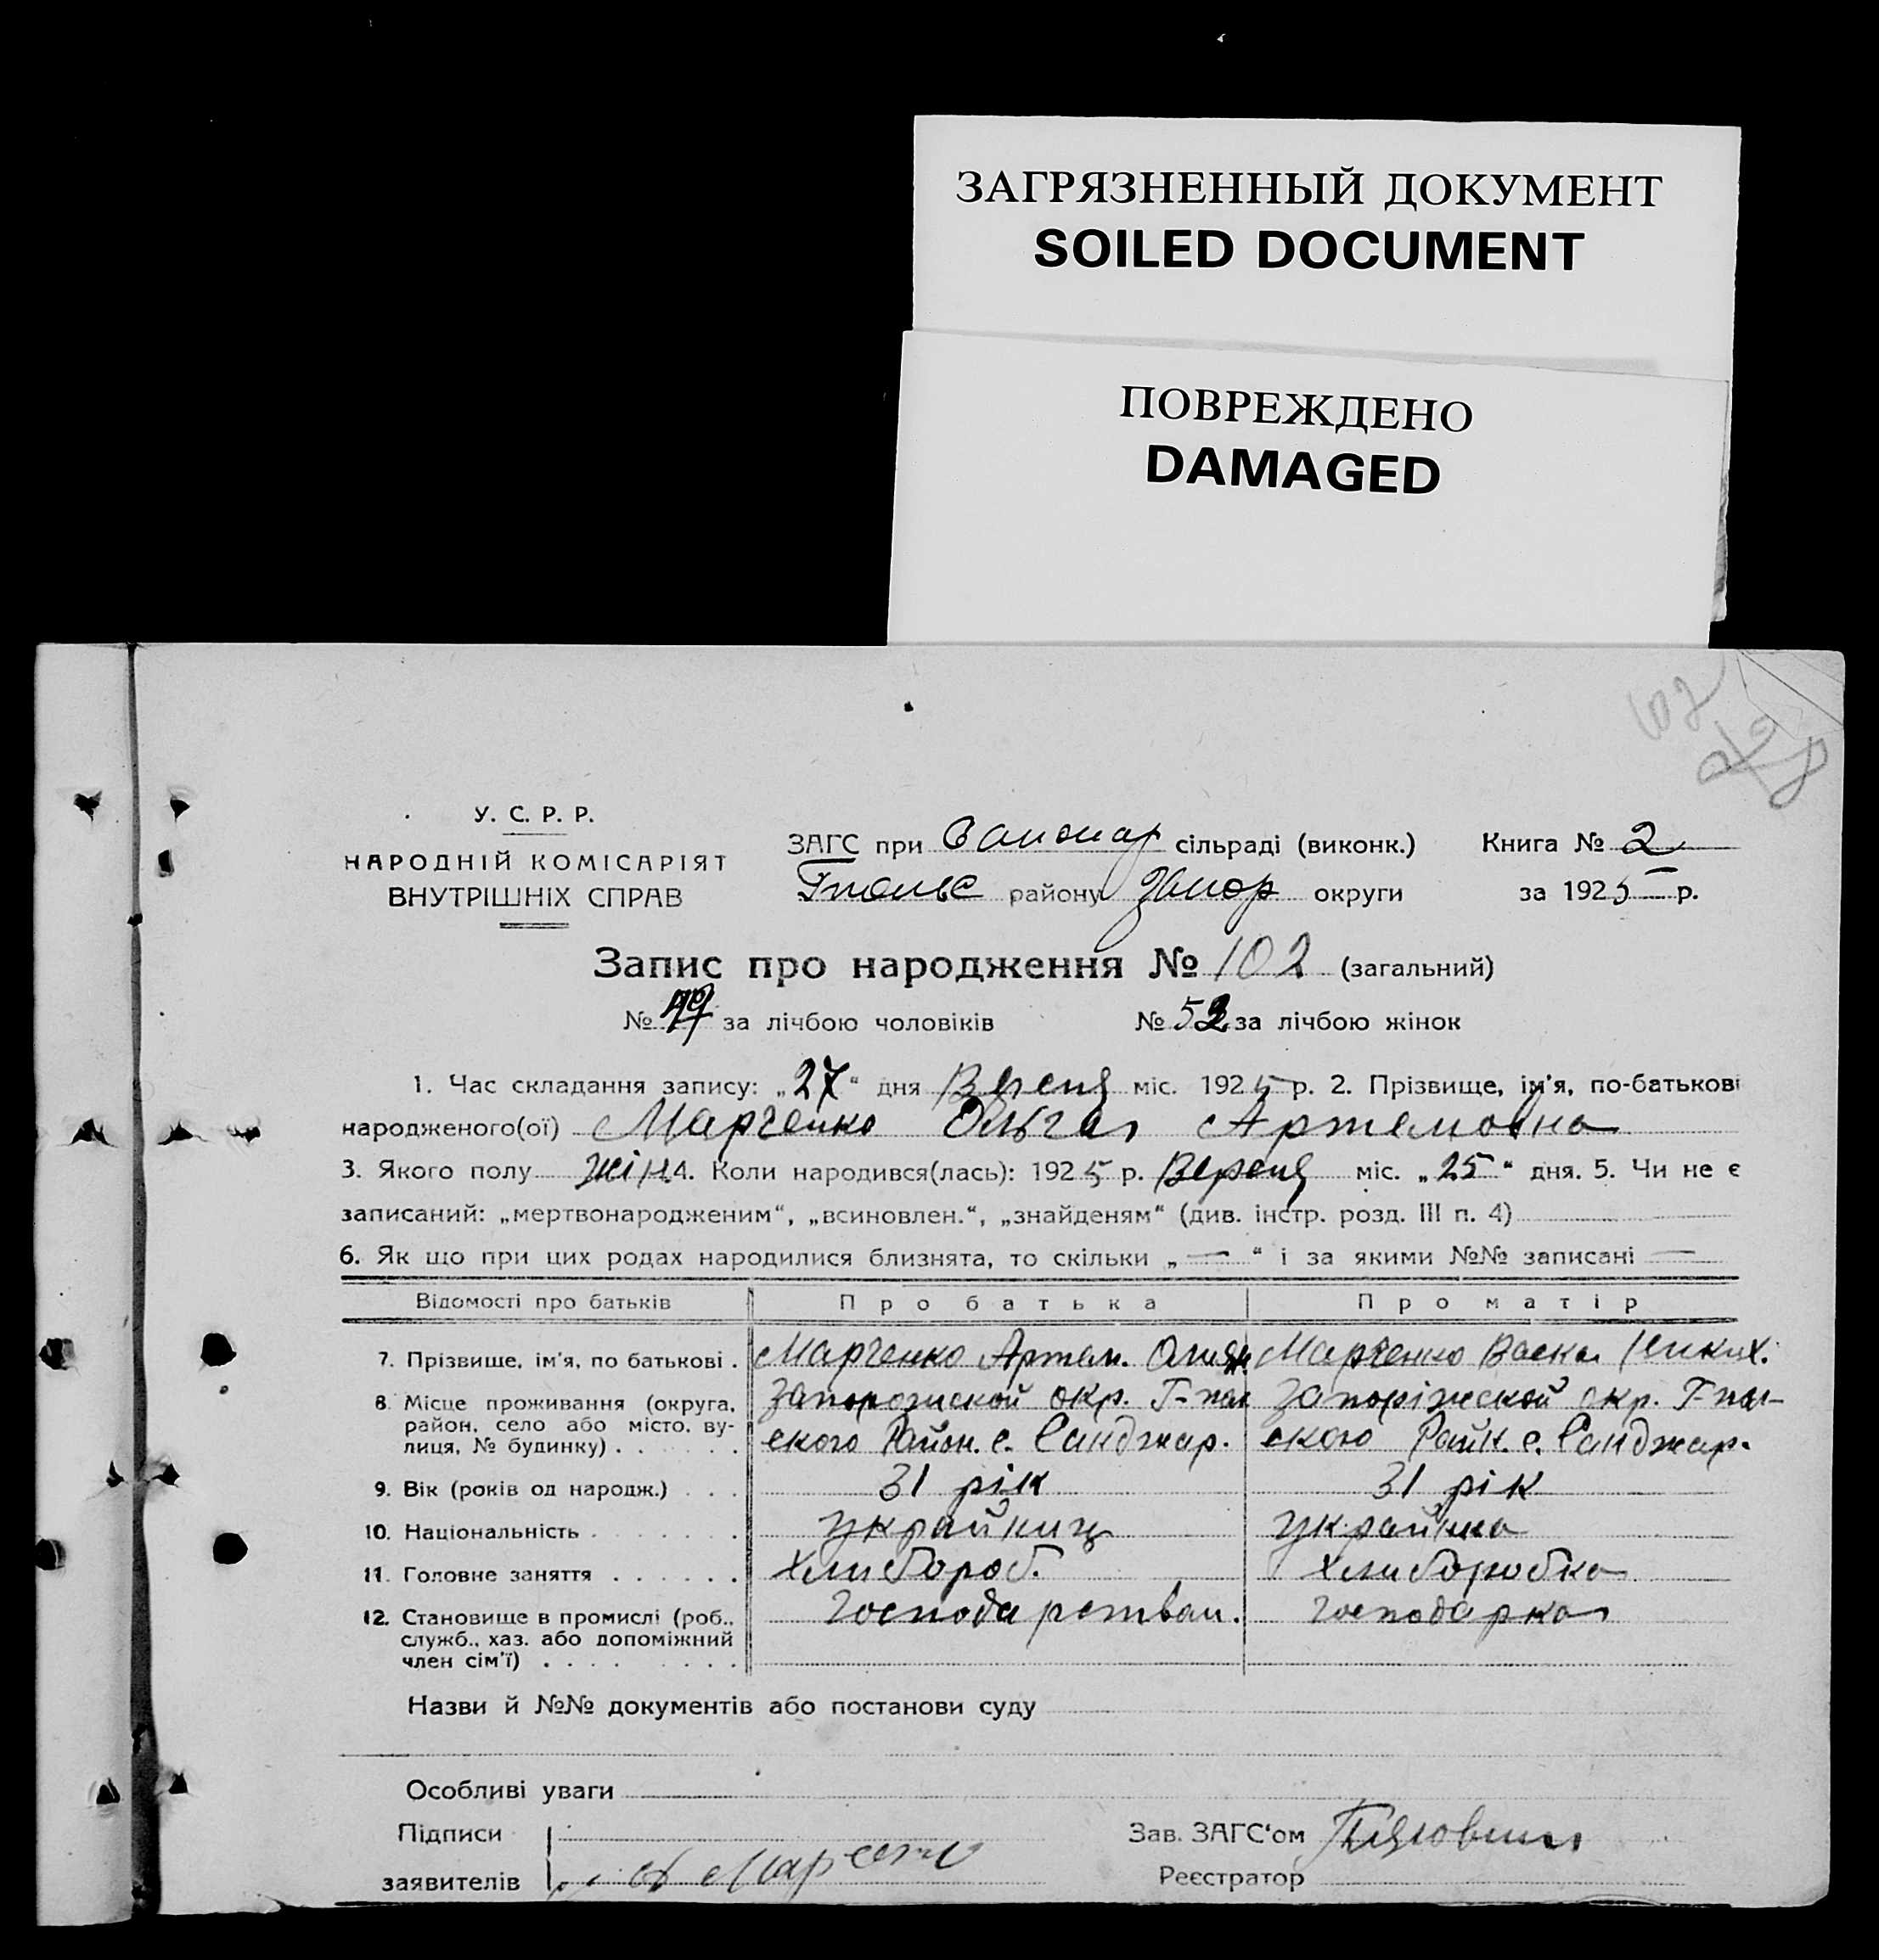 ЗАГРЯЗНЕННЫЙ ДОКУМЕНТ
SOILED DOCUMENT
ПОВРЕЖДЕНО
DAMAGED
102
У. С. Р. Р.
НАРОДНІЙ КОМІСАРІЯТ
ВНУТРІШНІХ СПРАВ
ЗАГС при Санжар сільраді (виконк.) Книга № 2
району Запор округи за 1925 р.
Запис про народження № 102 (загальний)
№ 49 за лічбою чоловіків № 53 за лічбою жінок
1. Час складання запису: „27" дня Вересц міс. 1925 р. 2. Прізвище, ім'я, по-батькові
народженого(ої) Марченко Ольга Артемовна
3. Якого полу жін. 4. Коли народився(лась): 1925 р. Вересц міс. „25" дня. 5. Чи не є
записаний: „мертвонародженим", „всиновлен.", „знайденям" (див. інстр. розд. III п. 4)
6. Як що при цих родах народилися близнята, то скільки „—" і за якими №№ записані —
Відомості про батьків Про батька Про матір
7. Прізвище, ім'я, по батькові . Марченко Артем. Марченко
8. Місце проживання (округа, район, село або місто, вулиця, № будинку) . . . . . . Запорожской окр. Г-пол Запоріжской окр. Г-пол-
ского Район. с. Санджар. ского Райн. с. Санджар.
9. Вік (років од народж.) . . . 31 рік 31 рік
10. Національність . . . . . . . украйниц украйнка
11. Головне заняття . . . . . . Хлибороб. Хлиборобка
12. Становище в промислі (роб., служб., хаз. або допоміжний член сім'ї) . . . . . . . . Господарка
Назви й №№ документів або постанови суду
Особливі уваги
Підписи
заявителів А Марченко
Зав. ЗАГС'ом
Реєстратор